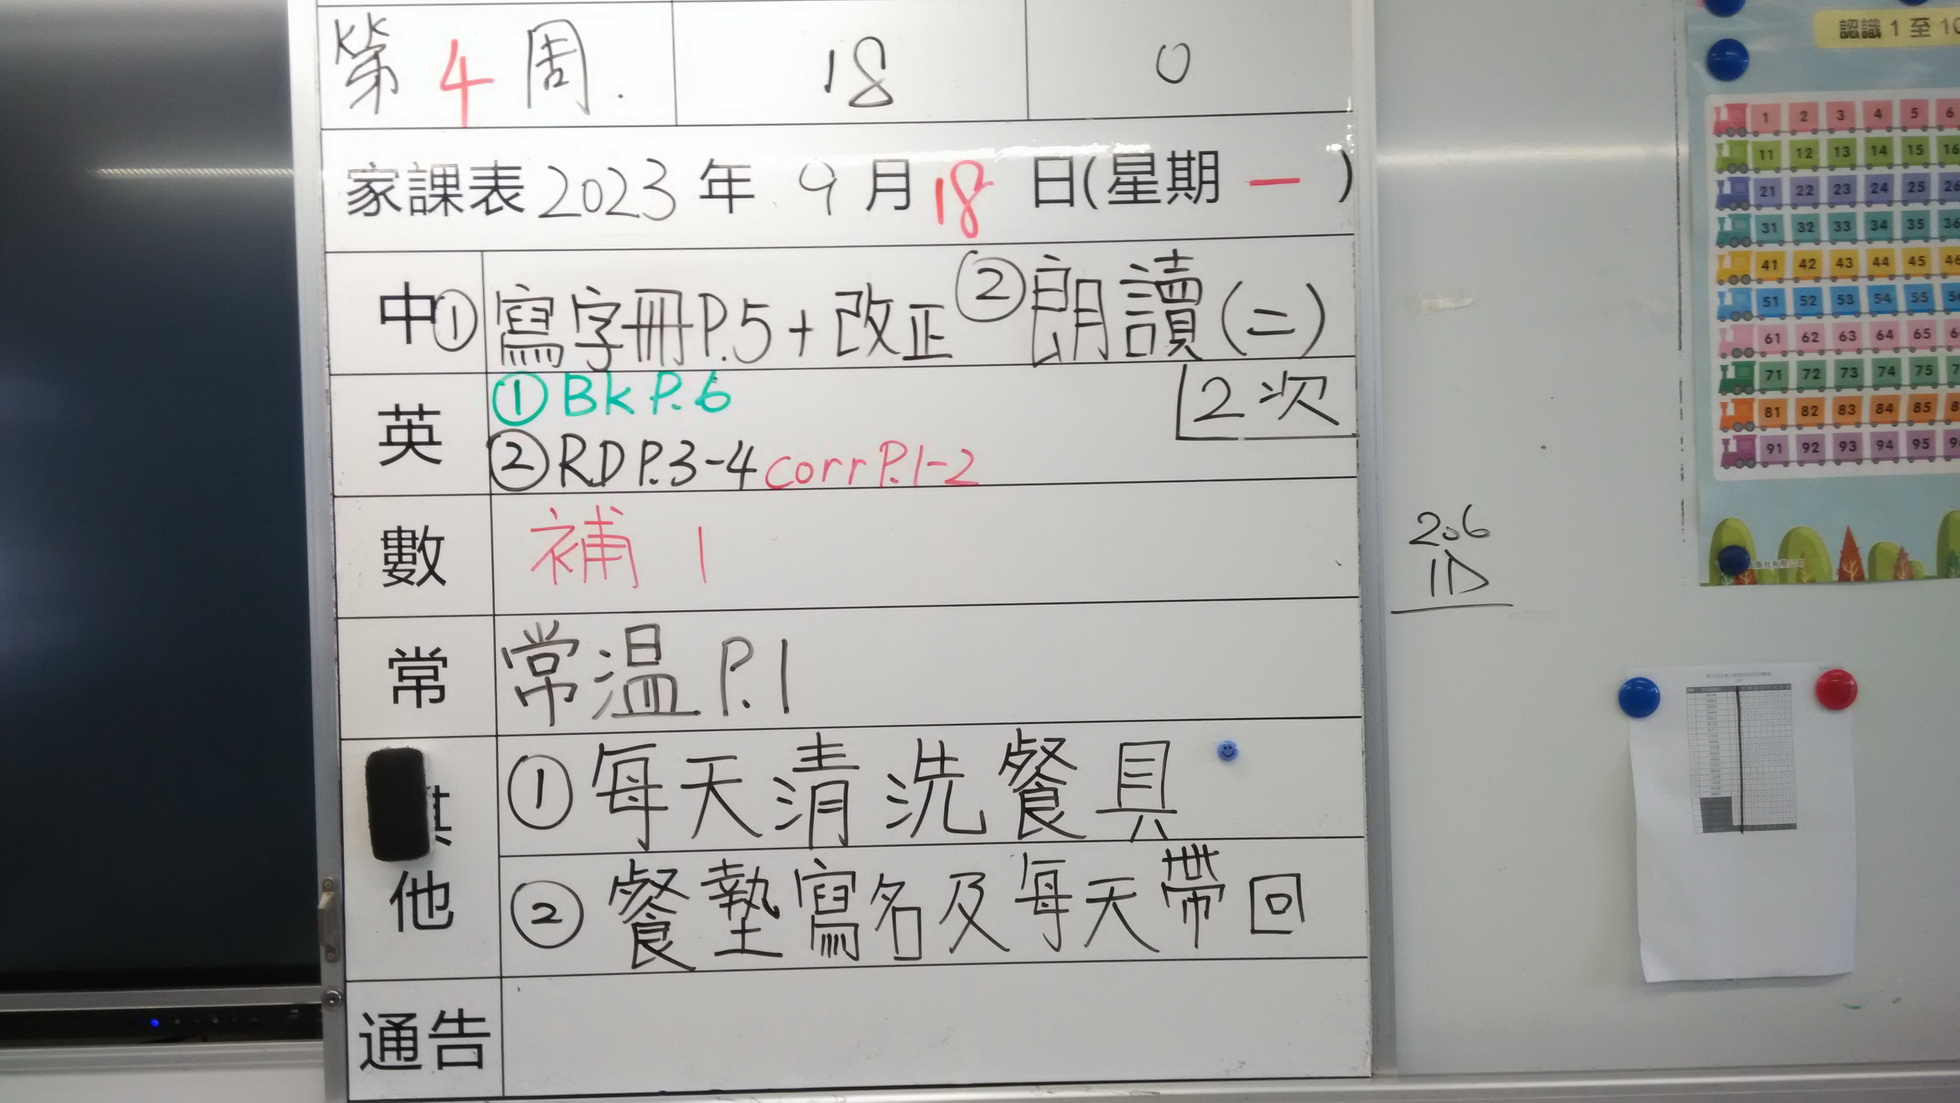 第4周. 18 0
家課表 2023 年 9 月 18 日(星期 一 )
中 ① 寫字冊P.5+改正 ②朗讀(二)
2次
英 ① Bk P.6
② RD P.3-4 corr P.1-2
數 補 1
常 常温 P.1
其他 ① 每天清洗餐具
② 餐墊寫名及每天帶回
通告
認識 1 至 10
1 2 3 4 5 6
11 12 13 14 15 16
21 22 23 24 25 26
31 32 33 34 35 36
41 42 43 44 45 46
51 52 53 54 55
61 62 63 64 65
71 72 73 74 75
81 82 83 84 85
91 92 93 94 95
2.6
1D